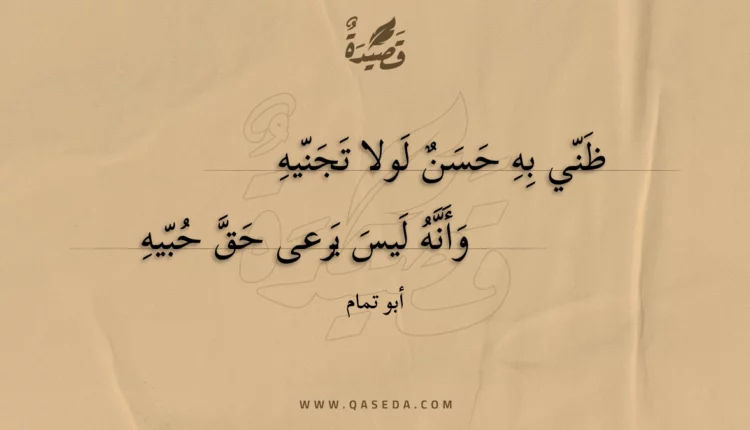 قَصِيْدَةٌ
ظَنّي بِهِ حَسَنٌ لَولا تَجَنّيهِ
وَأَنَّهُ لَيسَ يَرعى حَقَّ حُبّيهِ
أبو تمام
WWW.QASEDA.COM